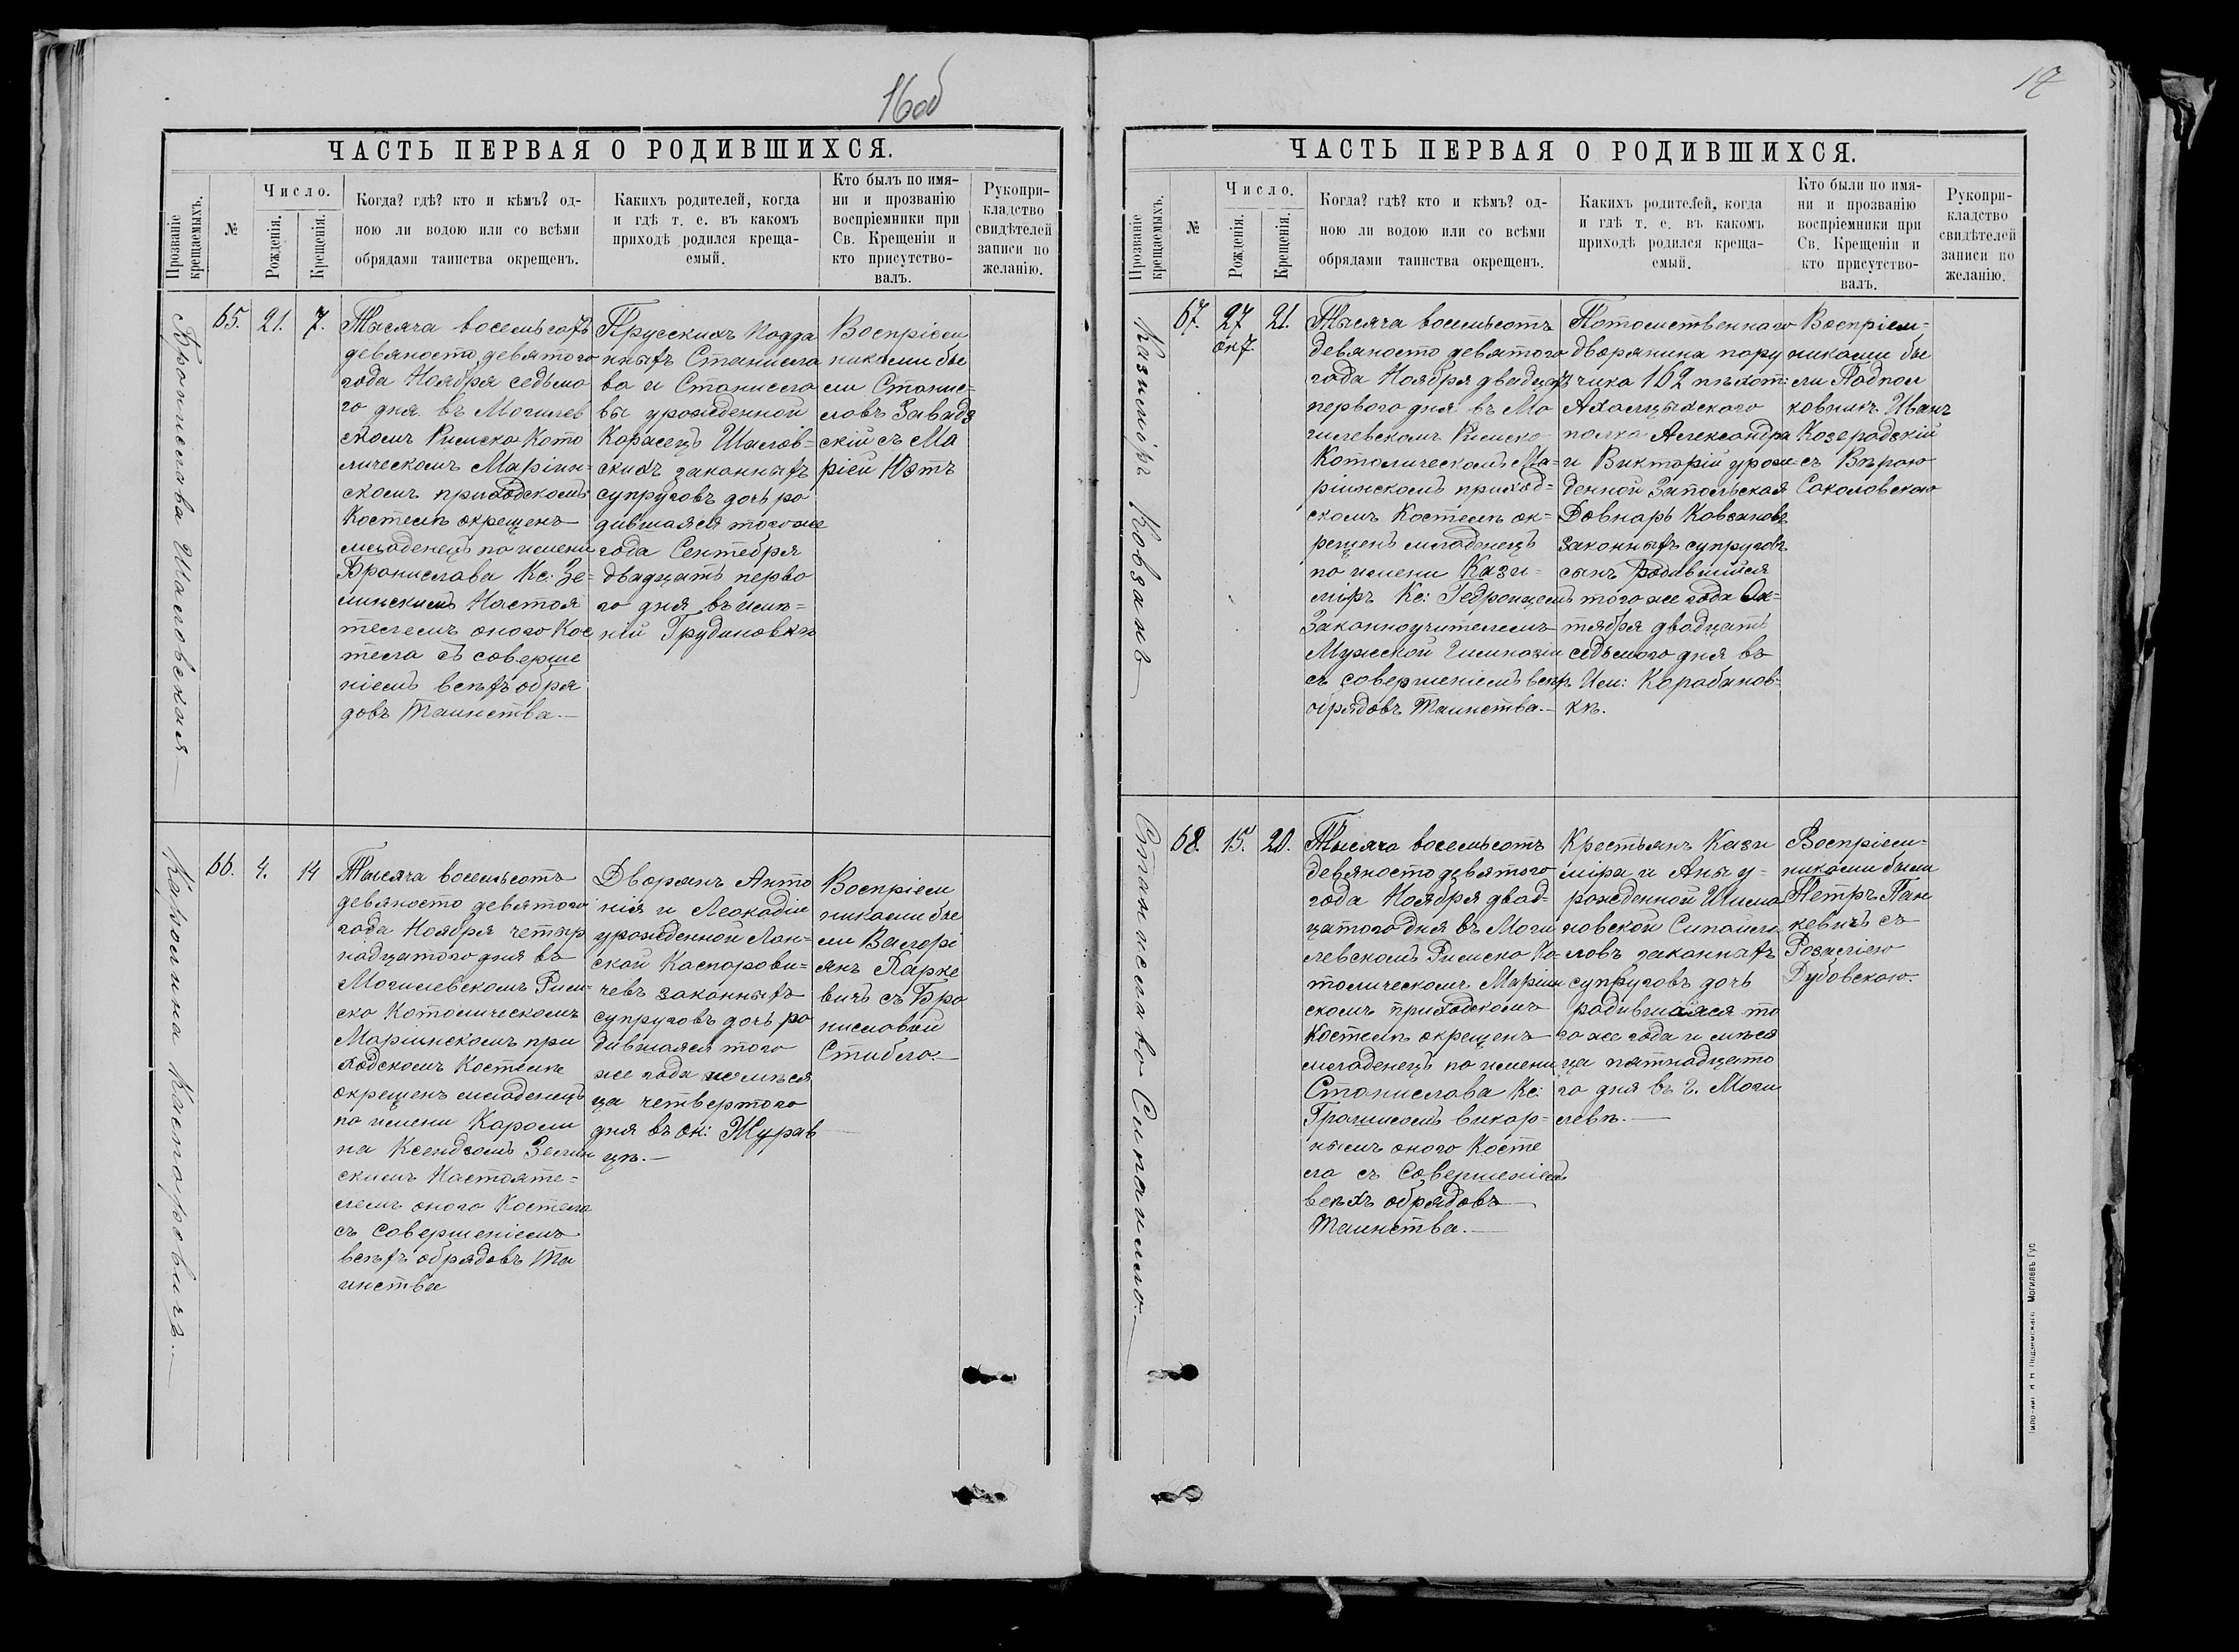 16об
ЧАСТЬ ПЕРВАЯ О РОДИВШИХСЯ.
Прозваніе крещаемыхъ.
№
Число.
Рожденія.
Крещенія.
Когда? гдѣ? кто и кѣмъ? од-
ною ли водою или со всѣми
обрядами таинства окрещенъ.
Какихъ родителей, когда
и гдѣ т. е. въ какомъ
приходѣ родился креща-
емый.
Кто былъ по имя-
ни и прозванію
воспріемники при
Св. Крещеніи и
кто присутство-
валъ.
Рукопри-
кладство
свидѣтелей
записи по
желанію.
Бронислава Шасловская
65. 21. 7.
Тысяча восемьсотъ
девяносто девятого
года Ноября седьмо
го дня въ Могилев
скомъ Римско Като
лическомъ Маріин-
скомъ приходскомъ
Костелѣ окрещенъ
младенецъ по имени
Бронислава Кс: Зе-
линскимъ Настоя
телемъ оного Кос
тела съ соверше
ніемъ всѣхъ обря
довъ Таинства.
Прусскихъ подда
нныхъ Станисла
ва и Станисла
вы урожденной
Шаслов-
скихъ законныхъ
супруговъ дочь ро
дившаяся того же
года Сентебря
двадцать перво
го дня въ имѣ-
ніи Грудиновкѣ
Воспріем
никами бы
ли Станис-
лавъ Завадз
скій съ Ма
ріей Ютъ
Каролина Каспоровичъ.
66. 4. 14
Тысяча восемьсотъ
девяносто девятого
года Ноября четыр
надцатого дня въ
Могилевскомъ Рим-
ско Католическомъ
Маріинскомъ при
ходскомъ Костелѣ
окрещенъ младенецъ
по имени Кароли
на Ксендзомъ Зелин
скимъ Настояте-
лемъ оного Костела
съ совершеніемъ
всѣхъ обрядовъ Та
инства
Дворянъ Анто
нія и Леокадіи
урожденной Лан-
ской Каспорови-
чевъ законныхъ
супруговъ дочь ро
дившаяся того
же года и мѣся
ца четвертого
дня въ ок: Журав
цѣ.
Воспріем
никами бы
ли Валері
янъ Парке
вичъ съ Бро
ниславой
Стибло.
17
ЧАСТЬ ПЕРВАЯ О РОДИВШИХСЯ.
Прозваніе крещаемыхъ.
№
Число.
Рожденія.
Крещенія.
Когда? гдѣ? кто и кѣмъ? од-
ною ли водою или со всѣми
обрядами таинства окрещенъ.
Какихъ родителей, когда
и гдѣ т. е. въ какомъ
приходѣ родился креща-
емый.
Кто были по имя-
ни и прозванію
воспріемники при
Св. Крещеніи и
кто присутство-
валъ.
Рукопри-
кладство
свидѣтелей
записи по
желанію.
Казиміръ Ковзанъ
67. 27 окт. 21.
Тысяча восемьсотъ
девяносто девятого
года Ноября двадцать
первого дня въ Мо
гилевскомъ Римско
Католическомъ Ма-
ріинскомъ приход-
скомъ Костелѣ ок-
рещенъ младенецъ
по имени Кази-
міръ Кс: Гедройцемъ
Законоучителемъ
Мужской Гимназіи
съ совершеніемъ всѣхъ
обрядовъ Таинства.
Потомственного
дворянина пору
чика 162 пѣхот:
Ахалцыхского
полка Александра
и Викторіи урож-
денной Запольская
Довнаръ Ковзановъ
законныхъ супруговъ
сынъ родившійся
того же года Ок-
тября двадцать
седьмого дня въ
Им: Карабанов-
кѣ.
Воспріем-
никами бы
ли Подпол
ковникъ Иванъ
Козерадскій
съ Вѣрою
Соколовскою
Станислава Сипайло.
68. 15. 20.
Тысяча восемьсотъ
девяносто девятого
года Ноября двад-
цатого дня въ Моги
левскомъ Римско Ка-
толическомъ Маріин
скомъ приходскомъ
Костелѣ окрещенъ
младенецъ по имени
Станислава Кс:
викар-
нымъ оного Косте
ла съ Совершеніемъ
всѣхъ обрядовъ
Таинства.
Крестьянъ Кази
міра и Аны у-
рожденной Шима
новской Сипайло
ловъ законныхъ
супруговъ дочь
родившаяся то
го же года и мѣся
ца пятнадцато
го дня въ г. Моги
левѣ.
Воспріем-
никами были
Петръ Пан
кевичъ съ
Розаліею
Дубовскою.
Могилевъ Губ